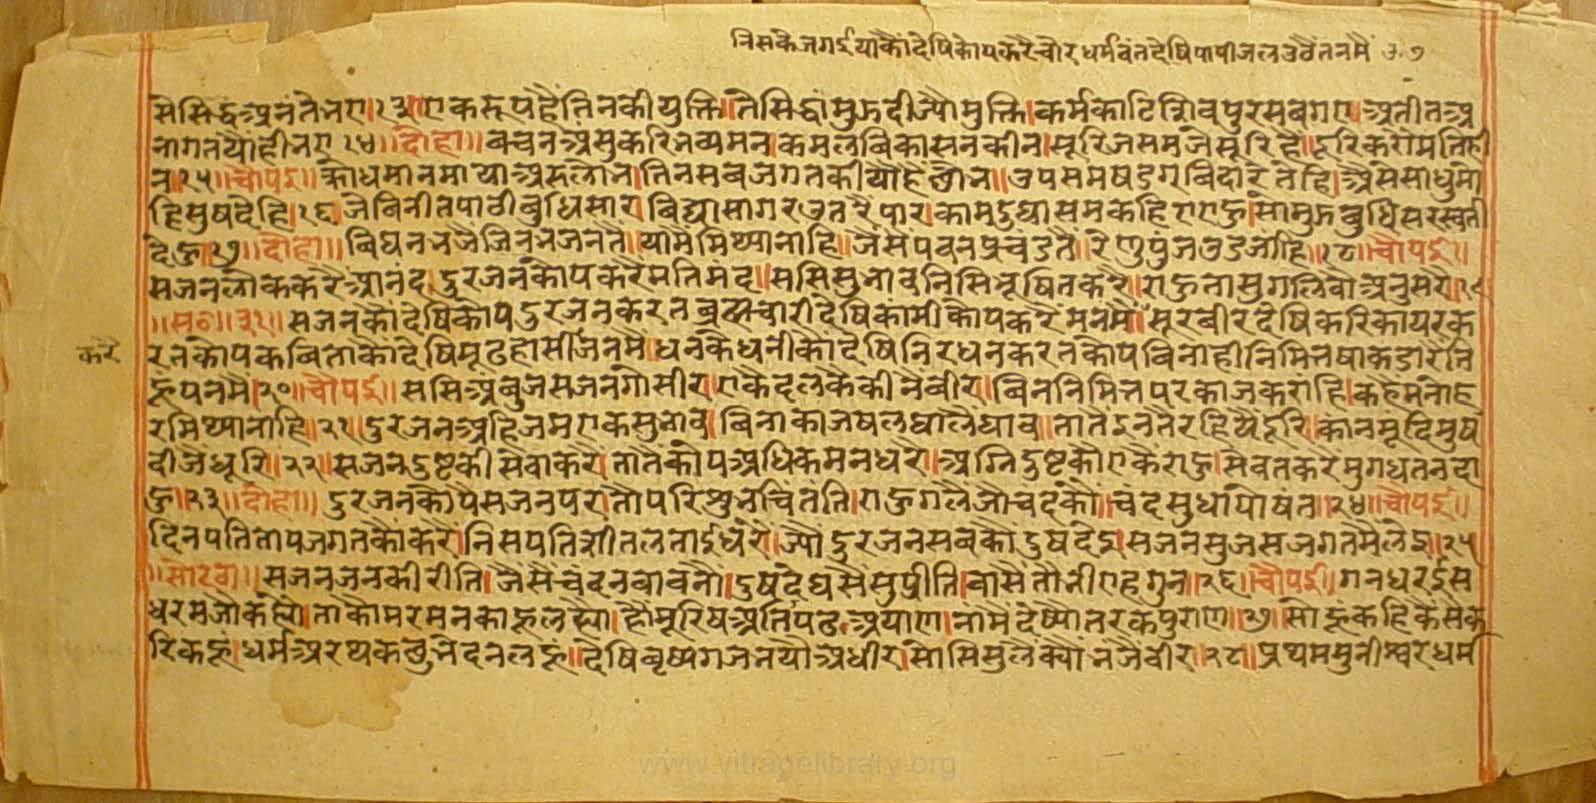 निसकैजगईयाकौंदेषिकोपकरैचोरधर्मवंतदेषिपापीजलउठैतनमैं ७
सेसिद्धअनंतेनए।१३।एकरूपहैतिनकीयुक्ति।तेसिद्धांमुझदीज्यौमुक्ति।कर्मकाटिशिवपुरसबगए।अतीतअ
नागतयौंहीनए१४॥दोहा॥बचनअंसुकरिभव्यमन।कमलबिकासनकीन।सूरिजसमजेसूरिहै।दूरिकरोमतिही
न॥१५॥चौपई॥क्रोधमानमायाअरुलोभ।तिनसबजगतकीयोहैछोभ॥उपसमषडगबिदारेतेहि।अैसेसाधुमो
हिसुषदेहि।१६।जेबिनीतपाठीबुधिसार।बिद्यासागरउतरैपार।कामदुघासमकहिएएहु।सोमुझबुधिसरस्वती
देहु।१७॥दोहा॥बिघनजजैजिनभजनतै।यामैमिथ्यानाहि॥जैसेपवनप्रचंडतै।रेणुपुंजउडजांहि॥१८॥चौपई॥
सजनलोककरैआनंद।दुरजनकोपकरैमतिमंद॥ससिसुभावनिसिभूषितकरै।राहुतासुगलिबोअनुसरै।१९
॥स०॥३१॥सजनकौदेषिकोपदुरजनकरतब्रह्मचारीदेषिकामीकोपकरैमनमै॥सूरबीरदेषिकरिकायरक
करै रतकोपकबिताकौदेषिमूढहासीजनमै।धनकेधनीकौदेषिनिरधनकरतकोपबिनाहीनिमित्तषाकडारेनि
रूपनमै।२०॥चौपई॥ससिअंबुजसजनगोसीर।एकैदलकेकीनेबीर।बिननिमित्तपरकाजकराहि।कहैमनोह
रमिथ्यानाहि॥२१।दुरजनअहिजमएकसुभाव।बिनाकाजषलघालैघाव।तातैइनतैरहियेदूरि।कानमूंदिमुष
दीजेधूरि।२२।सजनदुष्टकीसेवाकरै।तातैकोपअधिकमनधरै।अग्निदुष्टकौएकैराहु।सेवतकरैमुगधतनदा
हु।२३॥दोहा॥दुरजनकोपैसजनपर।तोपरिशुभचिंतंति।राहुगलैजोचंदकौ।चंदसुधापोषंत॥२४॥चौपई॥
दिनपतितापजगतकौकरै।निसपतिशीतलताईधरै।ज्यौदुरजनसबकौदुषदेइ।सजनसुजसजगतमैलेइ॥२५
॥सोरठा॥सजनजनकीरीति।जैसेचंदनबावनौ।दुषदेघसैसुप्रीति।बासैतौभीएहगुन॥२६।चौपई॥गनधरईस
धरमजोकह्यो।ताकौमरमनकाहूलह्यो।हौमूरिषअतिपढअयाण।नामैदेष्यातरकपुराण॥२७॥सोहूकहिकेसेक
रिकहूं।धर्मअरथकछुभेदनलहूं॥देषिबृष्यगजनयौअधीर।सोसिसुलैक्यौनजैबीर।२८।प्रथममुनीश्वरधर्म
www.vitragelibrary.org